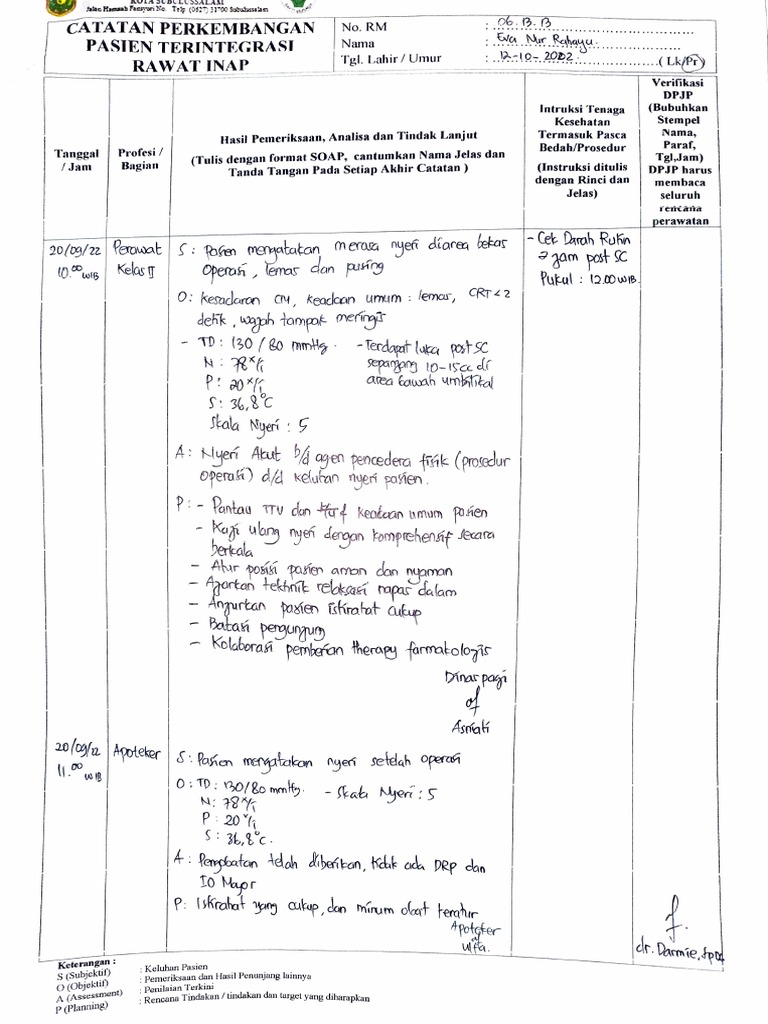 KOTA SUBULUSSALAM
Jalan Hamzah Fansyuri No. Telp (0627) 31700 Subulussalam
CATATAN PERKEMBANGAN
PASIEN TERINTEGRASI
RAWAT INAP
No. RM : 06.13.13
Nama : Eva Nur Rahayu.
Tgl. Lahir / Umur : 12-10-2002 (Lk/Pr)
Tanggal / Jam
Profesi / Bagian
Hasil Pemeriksaan, Analisa dan Tindak Lanjut
(Tulis dengan format SOAP, cantumkan Nama Jelas dan
Tanda Tangan Pada Setiap Akhir Catatan )
Intruksi Tenaga
Kesehatan
Termasuk Pasca
Bedah/Prosedur
(Instruksi ditulis
dengan Rinci dan
Jelas)
Verifikasi
DPJP
(Bubuhkan
Stempel
Nama,
Paraf,
Tgl,Jam)
DPJP harus
membaca
seluruh
rencana
perawatan
20/09/22
10.00 WIB
Perawat
Kelas II
S : Pasien mengatakan merasa nyeri diarea bekas
operasi, lemas dan pusing
O: kesadaran CM, keadaan umum : lemas, CRT < 2
detik, wajah tampak meringis
- TD : 130 / 80 mmHg.
N : 78 x/i
P : 20 x/i
S : 36,8°C
Skala Nyeri : 5
- Terdapat luka post SC
sepanjang 10-15cc di
area bawah umbilikal
A : Nyeri Akut b/d agen pencedera fisik (prosedur
operasi) d/d keluhan nyeri pasien.
P : - Pantau TTV dan keadaan umum pasien
- Kaji ulang nyeri dengan komprehensif secara
berkala
- Atur posisi pasien aman dan nyaman
- Ajarkan tekhnik relaksasi napas dalam
- Anjurkan pasien istirahat cukup
- Batasi pengunjung
- Kolaborasi pemberian therapy farmakologis
Dinas pagi
Asmiati
- Cek Darah Rutin
2 jam post SC
Pukul : 12.00 WIB.
20/09/22
11.00 WIB
Apoteker
S : Pasien mengatakan nyeri setelah operasi
O : TD : 130/80 mmHg.
N : 78 x/i
P : 20 x/i
S : 36,8°C.
- Skala Nyeri : 5
A : Pengobatan telah diberikan, tidak ada DRP dan
IO Mayor
P : Istirahat yang cukup, dan minum obat teratur
Apoteker
Ulfa.
dr. Darmie, SpOG
Keterangan :
S (Subjektif) : Keluhan Pasien
O (Objektif) : Pemeriksaan dan Hasil Penunjang lainnya
A (Assessment) : Penilaian Terkini
P (Planning) : Rencana Tindakan / tindakan dan target yang diharapkan